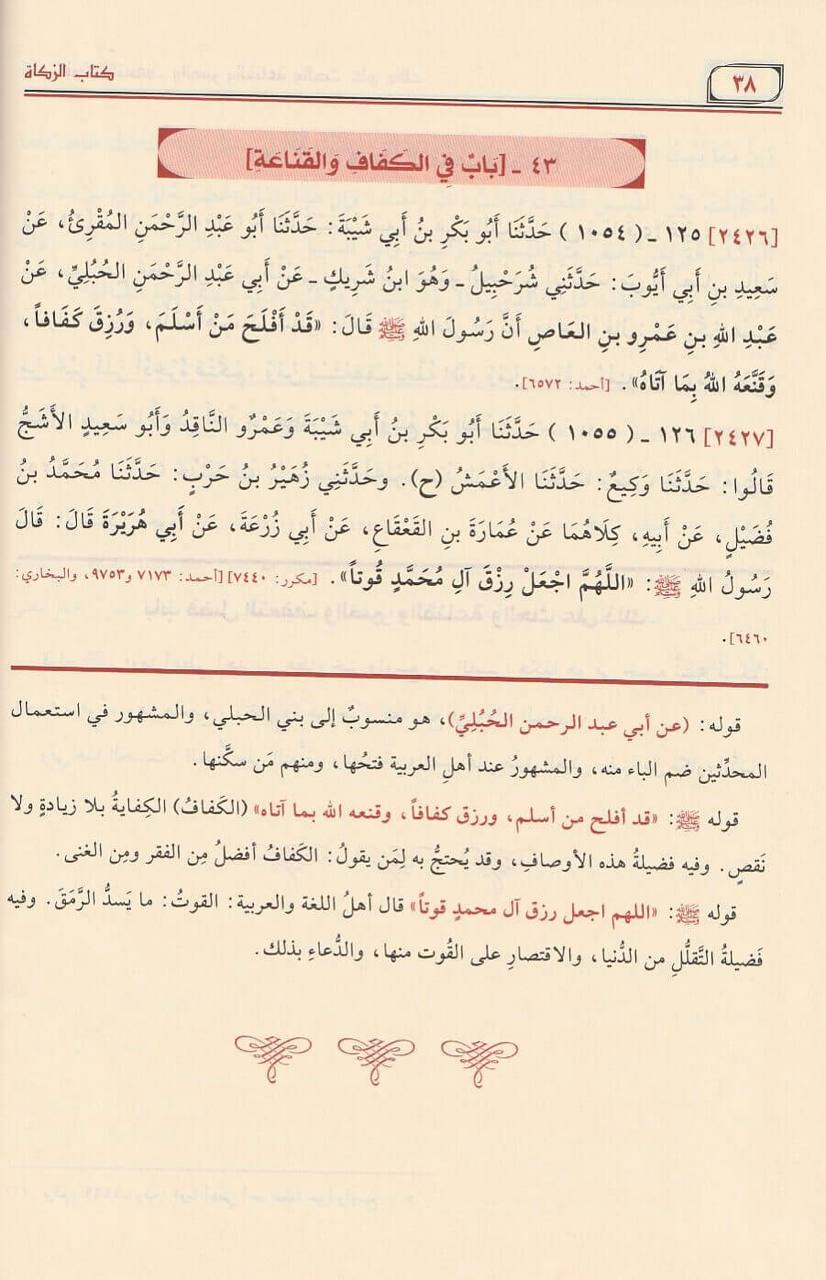 ٣٨
كتاب الزكاة
٤٣ ـ [بَابٌ فِي الكَفَافِ وَالقَنَاعَةِ]
[٢٤٢٦] ١٢٥ ـ ( ١٠٥٤ ) حَدَّثَنَا أَبُو بَكْرِ بنُ أَبِي شَيْبَةَ: حَدَّثَنَا أَبُو عَبْدِ الرَّحْمَنِ المُقْرِئُ، عَنْ
سَعِيدِ بنِ أَبِي أَيُّوبَ: حَدَّثَنِي شُرَحْبِيلُ ـ وَهُوَ ابنُ شَرِيكٍ ـ عَنْ أَبِي عَبْدِ الرَّحْمَنِ الحُبُلِيِّ، عَنْ
عَبْدِ اللهِ بنِ عَمْرِو بنِ العَاصِ أَنَّ رَسُولَ اللهِ ﷺ قَالَ: «قَدْ أَفْلَحَ مَنْ أَسْلَمَ، وَرُزِقَ كَفَافاً،
وَقَنَّعَهُ اللهُ بِمَا آتَاهُ». [أحمد: ٦٥٧٢].
[٢٤٢٧] ١٢٦ ـ ( ١٠٥٥ ) حَدَّثَنَا أَبُو بَكْرِ بنُ أَبِي شَيْبَةَ وَعَمْرٌو النَّاقِدُ وَأَبُو سَعِيدٍ الأَشَجُّ
قَالُوا: حَدَّثَنَا وَكِيعٌ: حَدَّثَنَا الأَعْمَشُ (ح). وحَدَّثَنِي زُهَيْرُ بنُ حَرْبٍ: حَدَّثَنَا مُحَمَّدُ بنُ
فُضَيْلٍ، عَنْ أَبِيهِ، كِلَاهُمَا عَنْ عُمَارَةَ بنِ القَعْقَاعِ، عَنْ أَبِي زُرْعَةَ، عَنْ أَبِي هُرَيْرَةَ قَالَ: قَالَ
رَسُولُ اللهِ ﷺ: «اللَّهُمَّ اجْعَلْ رِزْقَ آلِ مُحَمَّدٍ قُوتاً». [مكرر: ٧٤٤٠] [أحمد: ٧١٧٣ و٩٧٥٣، والبخاري:
٦٤٦٠].
قوله: (عن أبي عبد الرحمن الحُبُلِيِّ)، هو منسوبٌ إلى بني الحبلي، والمشهور في استعمال
المحدِّثين ضم الباء منه، والمشهورُ عند أهلِ العربية فتحُها، ومنهم مَن سكَّنها.
قوله ﷺ: «قد أفلح من أسلم، ورزق كفافاً، وقنعه الله بما آتاه» (الكَفافُ) الكِفايةُ بلا زيادةٍ ولا
نَقصٍ. وفيه فضيلةُ هذه الأوصافِ، وقد يُحتجُّ به لِمَن يقولُ: الكَفافُ أفضلُ مِن الفقر ومِن الغنى.
قوله ﷺ: «اللهم اجعل رزق آل محمدٍ قوتاً» قال أهلُ اللغة والعربية: القوتُ: ما يَسدُّ الرَّمَقَ. وفيه
فَضيلةُ التَّقلُّلِ من الدُّنيا، والاقتصارِ على القُوت منها، والدُّعاءِ بذلك.